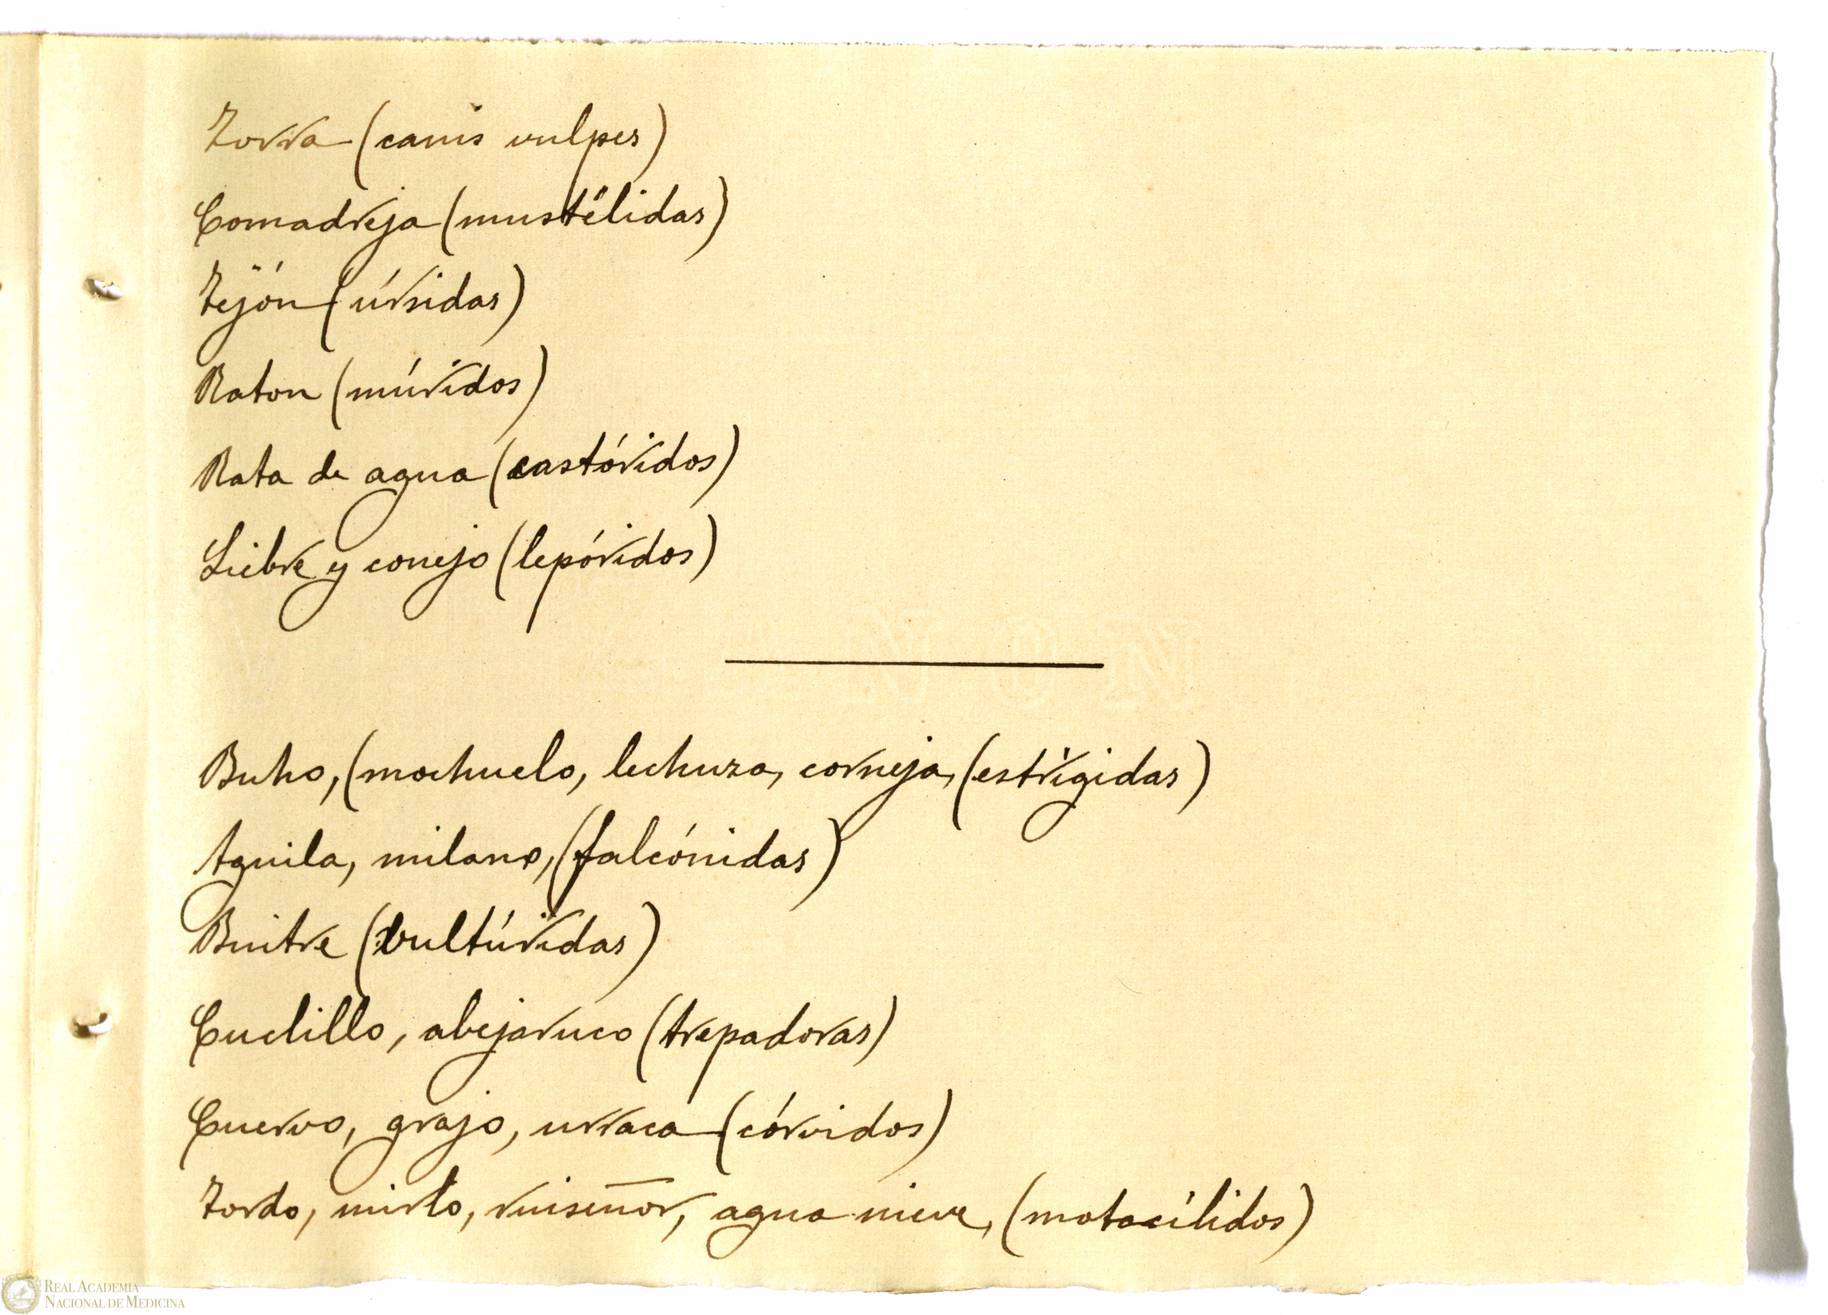 Zorra (canis vulpes)
Comadreja (mustélidas)
Tejón (úrsidas)
Raton (múridos)
Rata de agua (castóridos)
Liebre y conejo (lepóridos)
Buho, (mochuelo, lechuza, corneja, (estrigidas)
Aguila, milano, (falcónidas)
Buitre (vultúridas)
Cuclillo, abejaruco (trepadoras)
Cuervo, grajo, urraca (córvidos)
Tordo, mirlo, ruiseñor, agua nieve, (motacílidos)
REAL ACADEMIA
NACIONAL DE MEDICINA